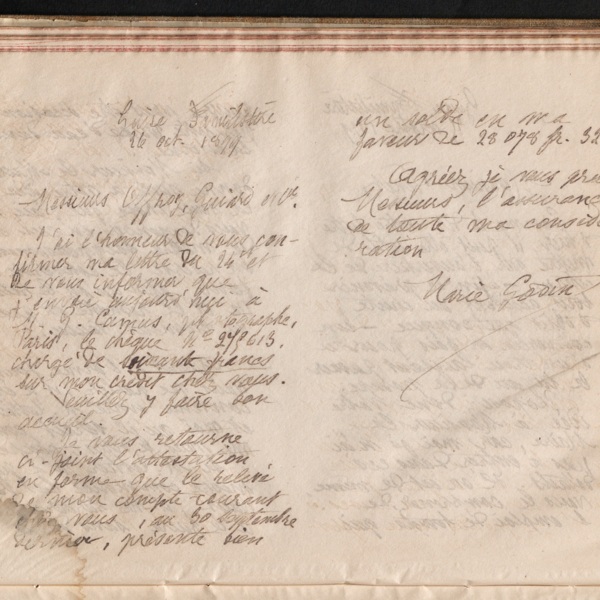 Guise, Familistère
26 oct. 1899
Messieurs Offroy, Guiard et Cie.
J'ai l'honneur de vous con-
firmer ma lettre du 24 et
de vous informer que
j'envoie aujourd'hui à
Camus, photographe,
Paris, le chèque
chargé de francs
sur mon crédit chez vous.
Veuillez y faire bon
accueil.
Je vous retourne
ci-joint l'attestation
en forme que le relevé
de mon compte courant
chez vous, au 30 Septembre
dernier, présente bien
un solde en ma
faveur de 28 078 fr. 32
Agréez, je vous prie
Messieurs, l'assurance
de toute ma considé
ration
Marie Godin